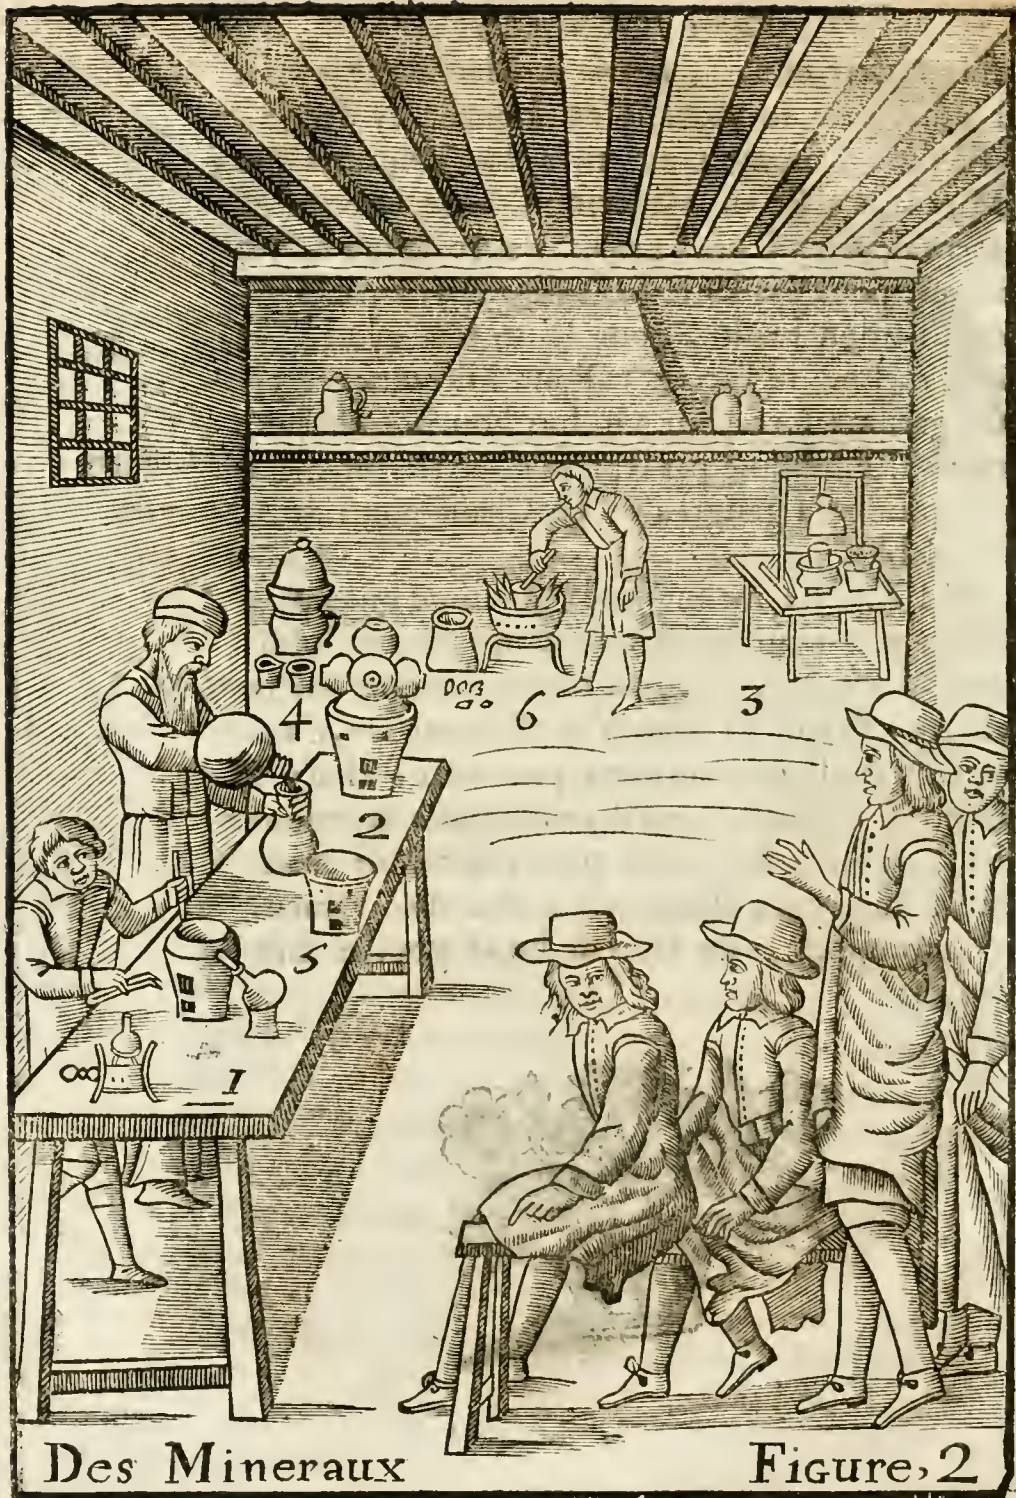 4
6
3
2
5
1
Des Mineraux Figure, 2